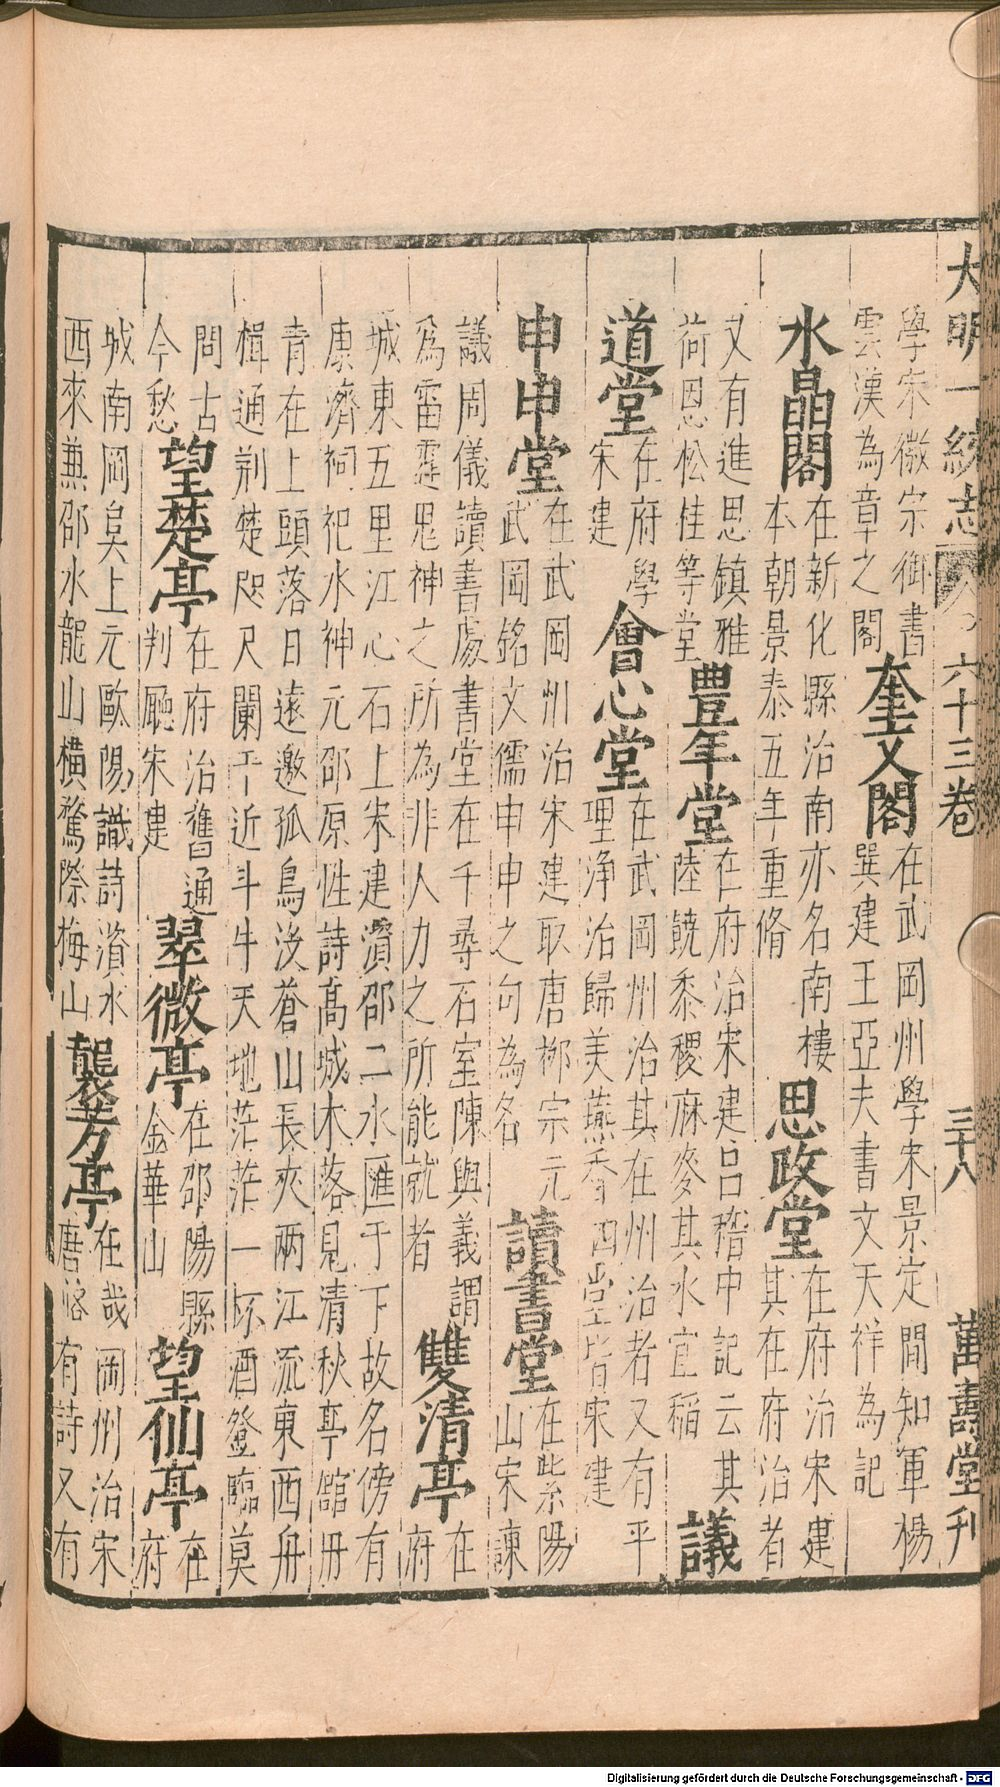 大明一統志 六十三卷 三十八 萬壽堂刊
學宋徽宗御書
雲漢為章之閣
奎文閣
在武岡州學宋景定間知軍楊
巽建王亞夫書文天祥為記
水晶閣
在新化縣治南亦名南樓
本朝景泰五年重脩
思政堂
在府治宋建
其在府治者
又有進思鎮雅
荷恩松桂等堂
豊年堂
在府治宋建吕稽中記云其
陸饒黍稷麻麥其水宜稲
議
道堂
在府學
宋建
會心堂
在武岡州治其在州治者又有平
理净治歸美燕香四堂皆宋建
申申堂
在武岡州治宋建取唐柳宗元
武岡銘文儒申申之句為名
讀書堂
在紫陽
山宋諫
議周儀讀書處書堂在千尋石室陳與義謂
為雷霆鬼神之所為非人力之所能就者
雙清亭
在
府
城東五里江心石上宋建澬邵二水匯于下故名傍有
康濟祠祀水神元邵原性詩髙城木落見清秋亭舘册
青在上頭落日遠邀孤鳥没蒼山長夾兩江流東西舟
楫通荆楚咫尺闌干近斗牛天地茫茫一坏酒登臨莫
問古
今愁
望楚亭
在府治舊通
判廳宋建
翠微亭
在邵陽縣
金華山
望仙亭
在
府
城南岡㠀上元歐陽識詩澬水
西來兼邵水龍山橫驁際梅山
襲芳亭
在武岡州治宋
唐 有詩又有
Digitalisierung gefördert durch die Deutsche Forschungsgemeinschaft - DFG